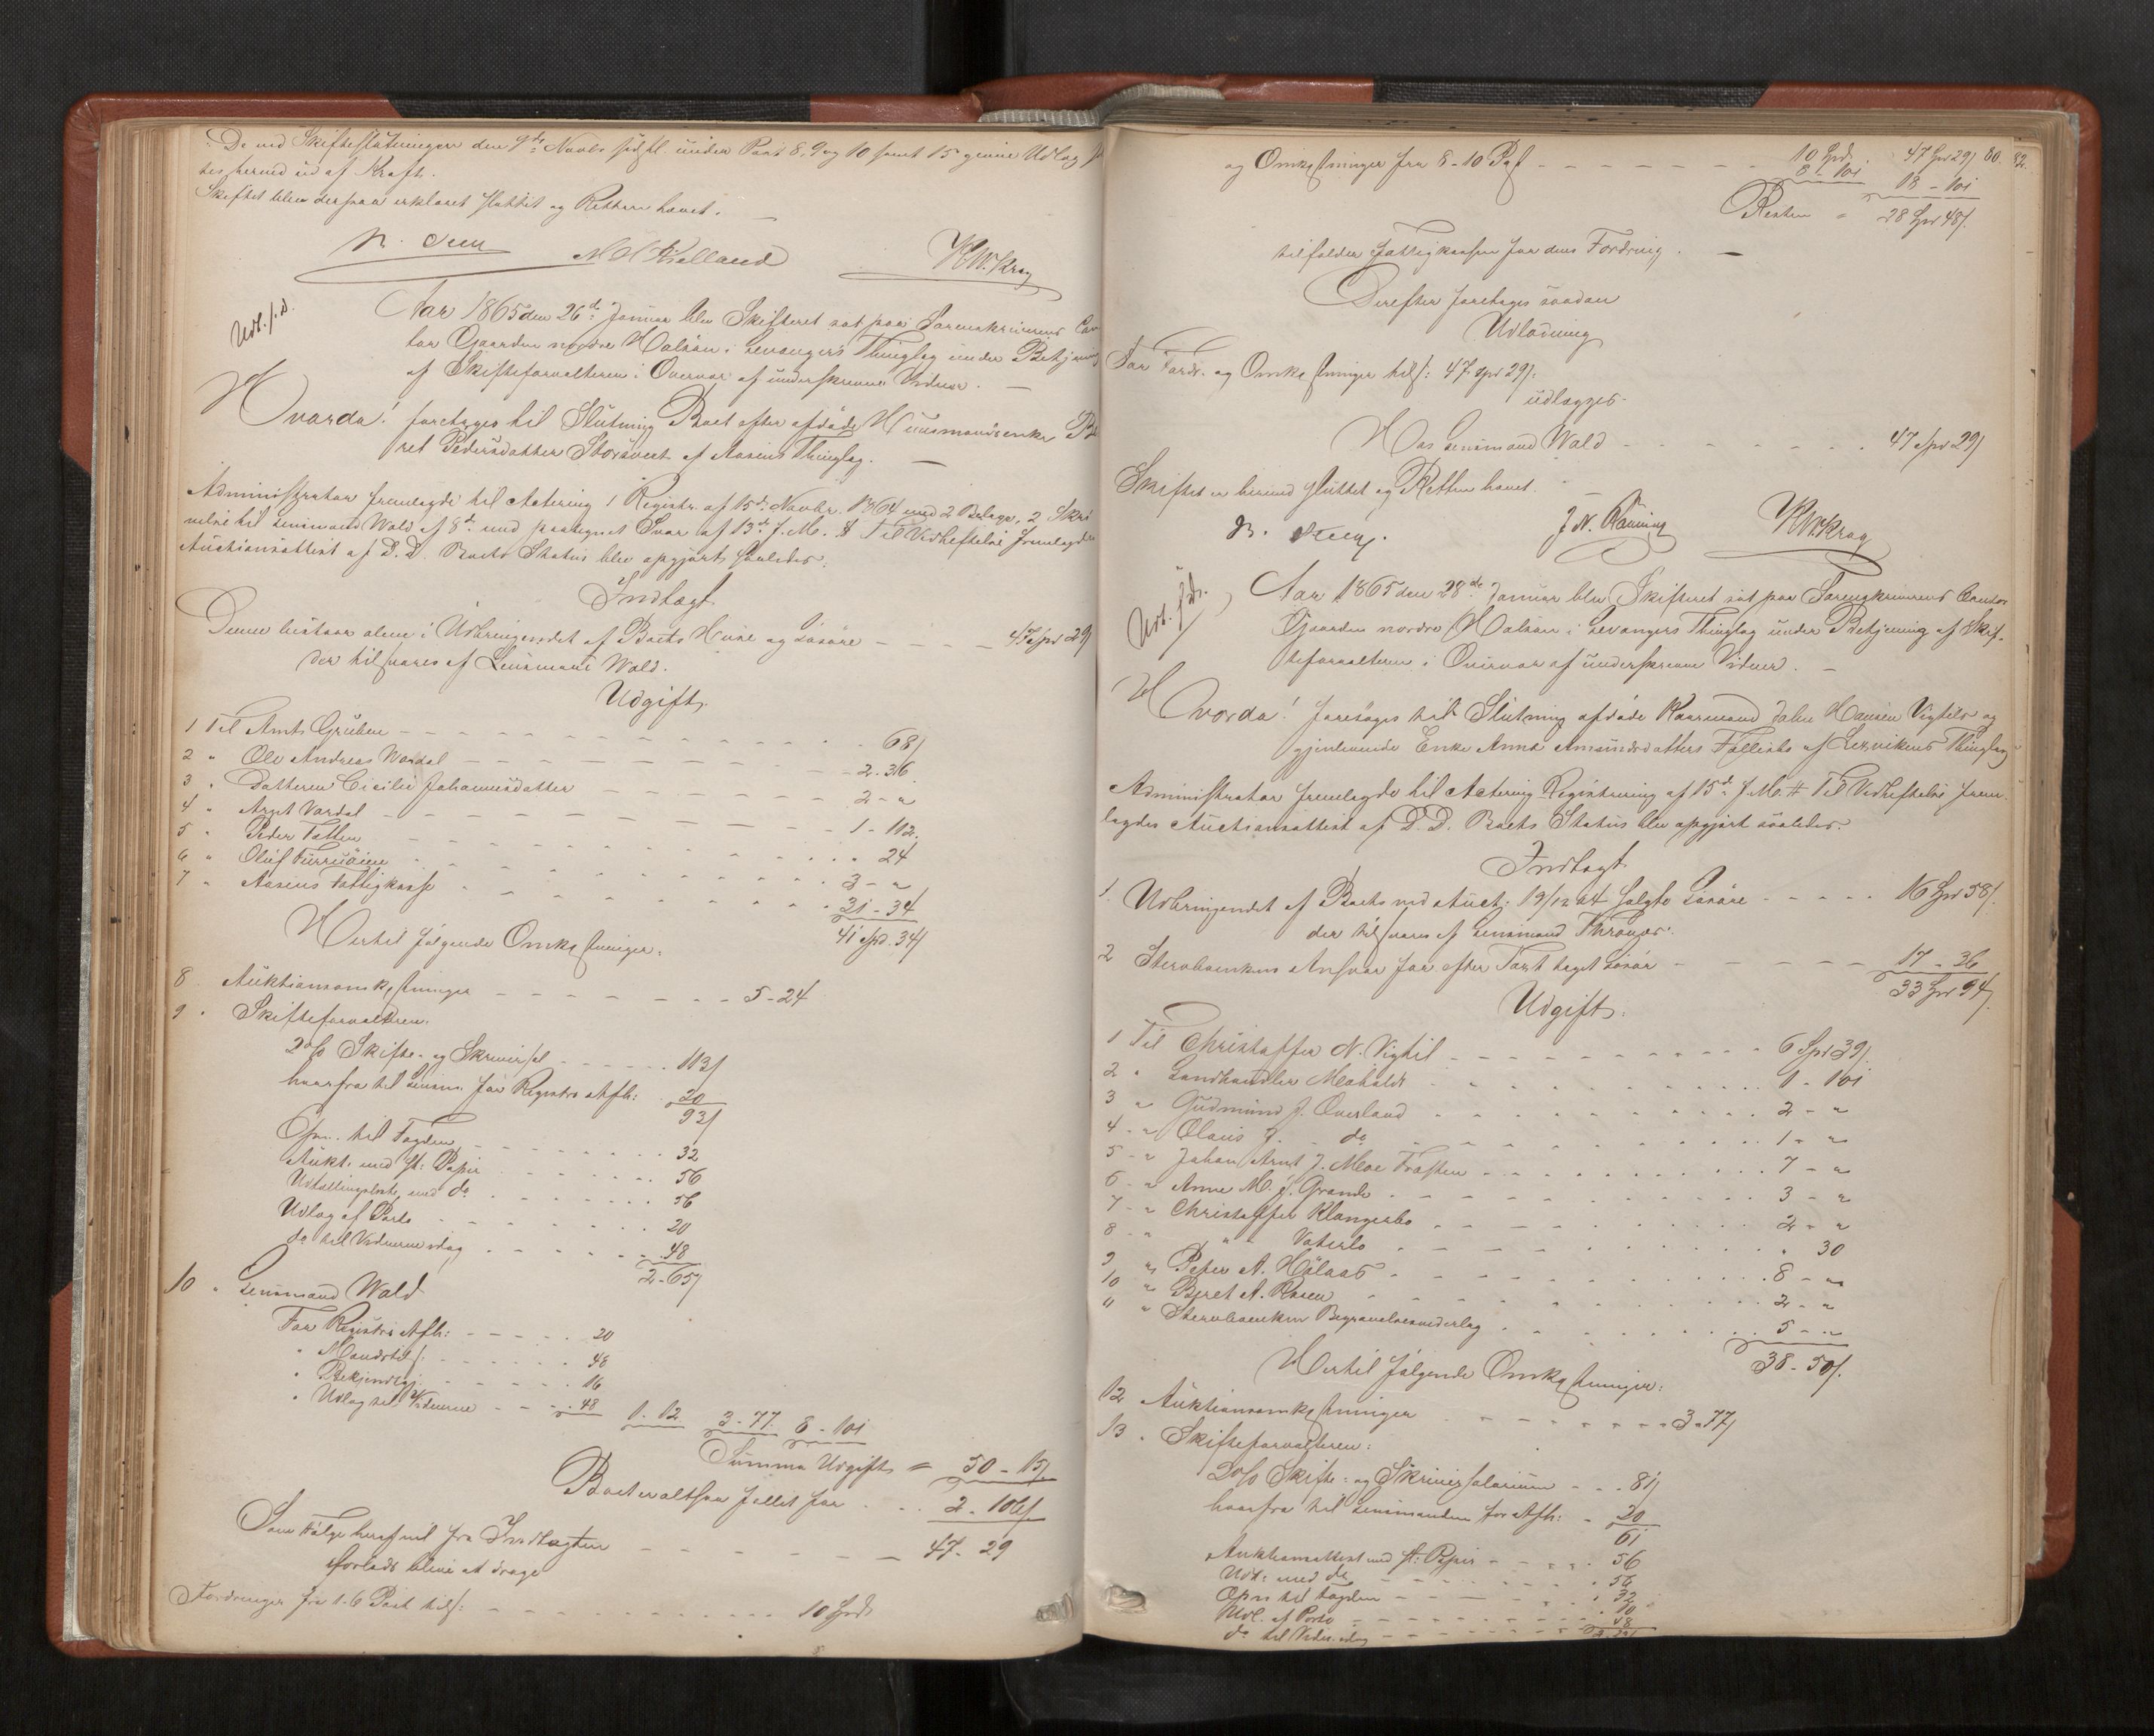 De ved Skifteslutningen den 9de Novbr sidstl. under Post 8, 9 og 10 samt 15 givne Udlæg
tes herved ud af Kraft.
Skiftet blev derpaa erklæret sluttet og Retten hævet.
M H Kielland KW.Krag
Udl. f. d.
Aar 1865 den 26de Januar blev Skifteret sat paa Sorenskriverens Con
tor Gaarden nordre Halsan i Levangers Thinglag under Betjening
af Skifteforvalteren i Overvær af underskrevne Vidner. —
Hvorda! foretoges til Slutning Boet efter afdøde Huusmandsenke Be
ret Pedersdatter Storsvect af Aasens Thinglag. —
Administrator fremlagde til Actering 1 Registr. af 15de Novbr. 1864 med 2 Bilage, 2 Skri
velse til Lensmand Wald af 8de med paategnet Svar af 13de f. M. # Til Vedheftelse fremlagdes
Auctionsattest af D.D. Boets Status blev opgjort saaledes:
Indtægt.
Denne bestaar alene i Udbringendet af Boets Huse og Løsøre — — — 47 Spd 29
der tilsvares af Lensmand Wald.
Udgift.
1 Til Amts Gruben — — — 68
2 " Ole Andreas Wordal — — — 2-36
3 " Datteren Cicilie Johannesdatter — — — 2-"
4 " Arnt Vordal — — — 1-112
5 " Peder Tallen — — — 24
6 " Oluf — — — 3-"
7 " Aasens Fattigkasse — — — 31-34
Hertil følgende Omkostninger: 41 Spd. 34
8 Auktionsomkostninger — — — 5-24
9 " Skifteforvalteren:
2% Skifte- og Skriversal — — — 113
hvorfra til Lensm. for Registrs Afh: 20
93
Opsn. til Fogden — — — 32
Aukt. med st: Papir — — — 56
Udtællingsbrev med do — — — 56
Udlæg af Porto — — — 20
do til Vidnerne idag — — — 48
2-65
10 " Lensmand Wald
For Registrs Afh: — — — 20
" Mandstils. — — — 48
" Bekjendtgj. — — — 16
" Udlæg til Vidnerne — — — 48 1-12 3-77 8-101
Summa Udgift = 50-15
Boet er altsaa fallit for — — 2-106
Som Følge heraf vil fra Indtægten — — — 47-29
forlods blive at drage
Fordringer fra 1-6 Post tils: — — — 10 Spd
80. 82.
og Omkostninger fra 8-10 Post — — — 10 Spd. 47 Spd 29
8-101 18-101
Resten = 28 Spd 48
tilfalder Fattigkassen for dens Fordring. —
Derefter foretoges saadan
Udlodning
For Fordr. og Omkostninger tils: 47 Spd 29
udlægges
Hos Lensmand Wald — — — 47 Spd 29
Skiftet er herved sluttet og Retten hævet. —
J N. Rønning KW.Krag
Udl. f. d.
Aar 1865 den 28de Januar blev Skifteret sat paa Sorenskriverens Contor
Gaarden nordre Halsan i Levangers Thinglag under Betjening af Skif-
teforvalteren i Overvær af underskrevne Vidner. —
Hvorda! foretoges til Slutning afdøde Kaarmand John Hansen Vigtils og
gjenlevende Enke Anna Amundsdatters Fællesbo af Lexvikens Thinglag
Administrator fremlagde til Actering Registrering af 15de f. M. # Til Vedheftelse frem-
lagdes Auctionsattest af D.D. Boets Status blev opgjort saaledes:
Indtægt
1. Udbringendet af Boets ved Auct: 19/12 64 solgte Løsøre — — — 16 Spd 58
der tilsvares af Lensmand Thronæs.
2 Stervboenkens Ansvar for efter Taxt taget Løsøre — — — 17-36
33 Spd 94
Udgift:
1 Til Christoffer N. Vigtil — — — 6 Spd 39
2 " Landhandler Meoholdt — — — 1-101
3 " Gudmund J. Overland — — — 2-"
4 " Olaus J. do — — — 1-"
5 " Johan Arnt J. Moe Frosten — — — 7-"
6 " Anne M. J. Grande — — — 3-"
7 " Christoffer Klangerbo — — — 2-"
8 " " Vaterlo — — — 30
9 " Peter A. Hølaas — — — 8-"
10 " Beret A. Rosen — — — 2-"
11 " Stervboenken Begravelsesvederlag — — — 5-"
Hertil følgende Omkostninger: 38-50
12 Auktionsomkostninger — — — 3-77
13 " Skifteforvalteren:
2% Skifte- og Skriversalarium — — — 81
hvorfra til Lensmanden for Afh: — 20
61
Auktionsattest med st: Papir — — — 56
Udt: med do — — — 56
Opsn til Fogden — — — 32
Udl. af Porto — — — 10
do til Vidn. idag — — — 48